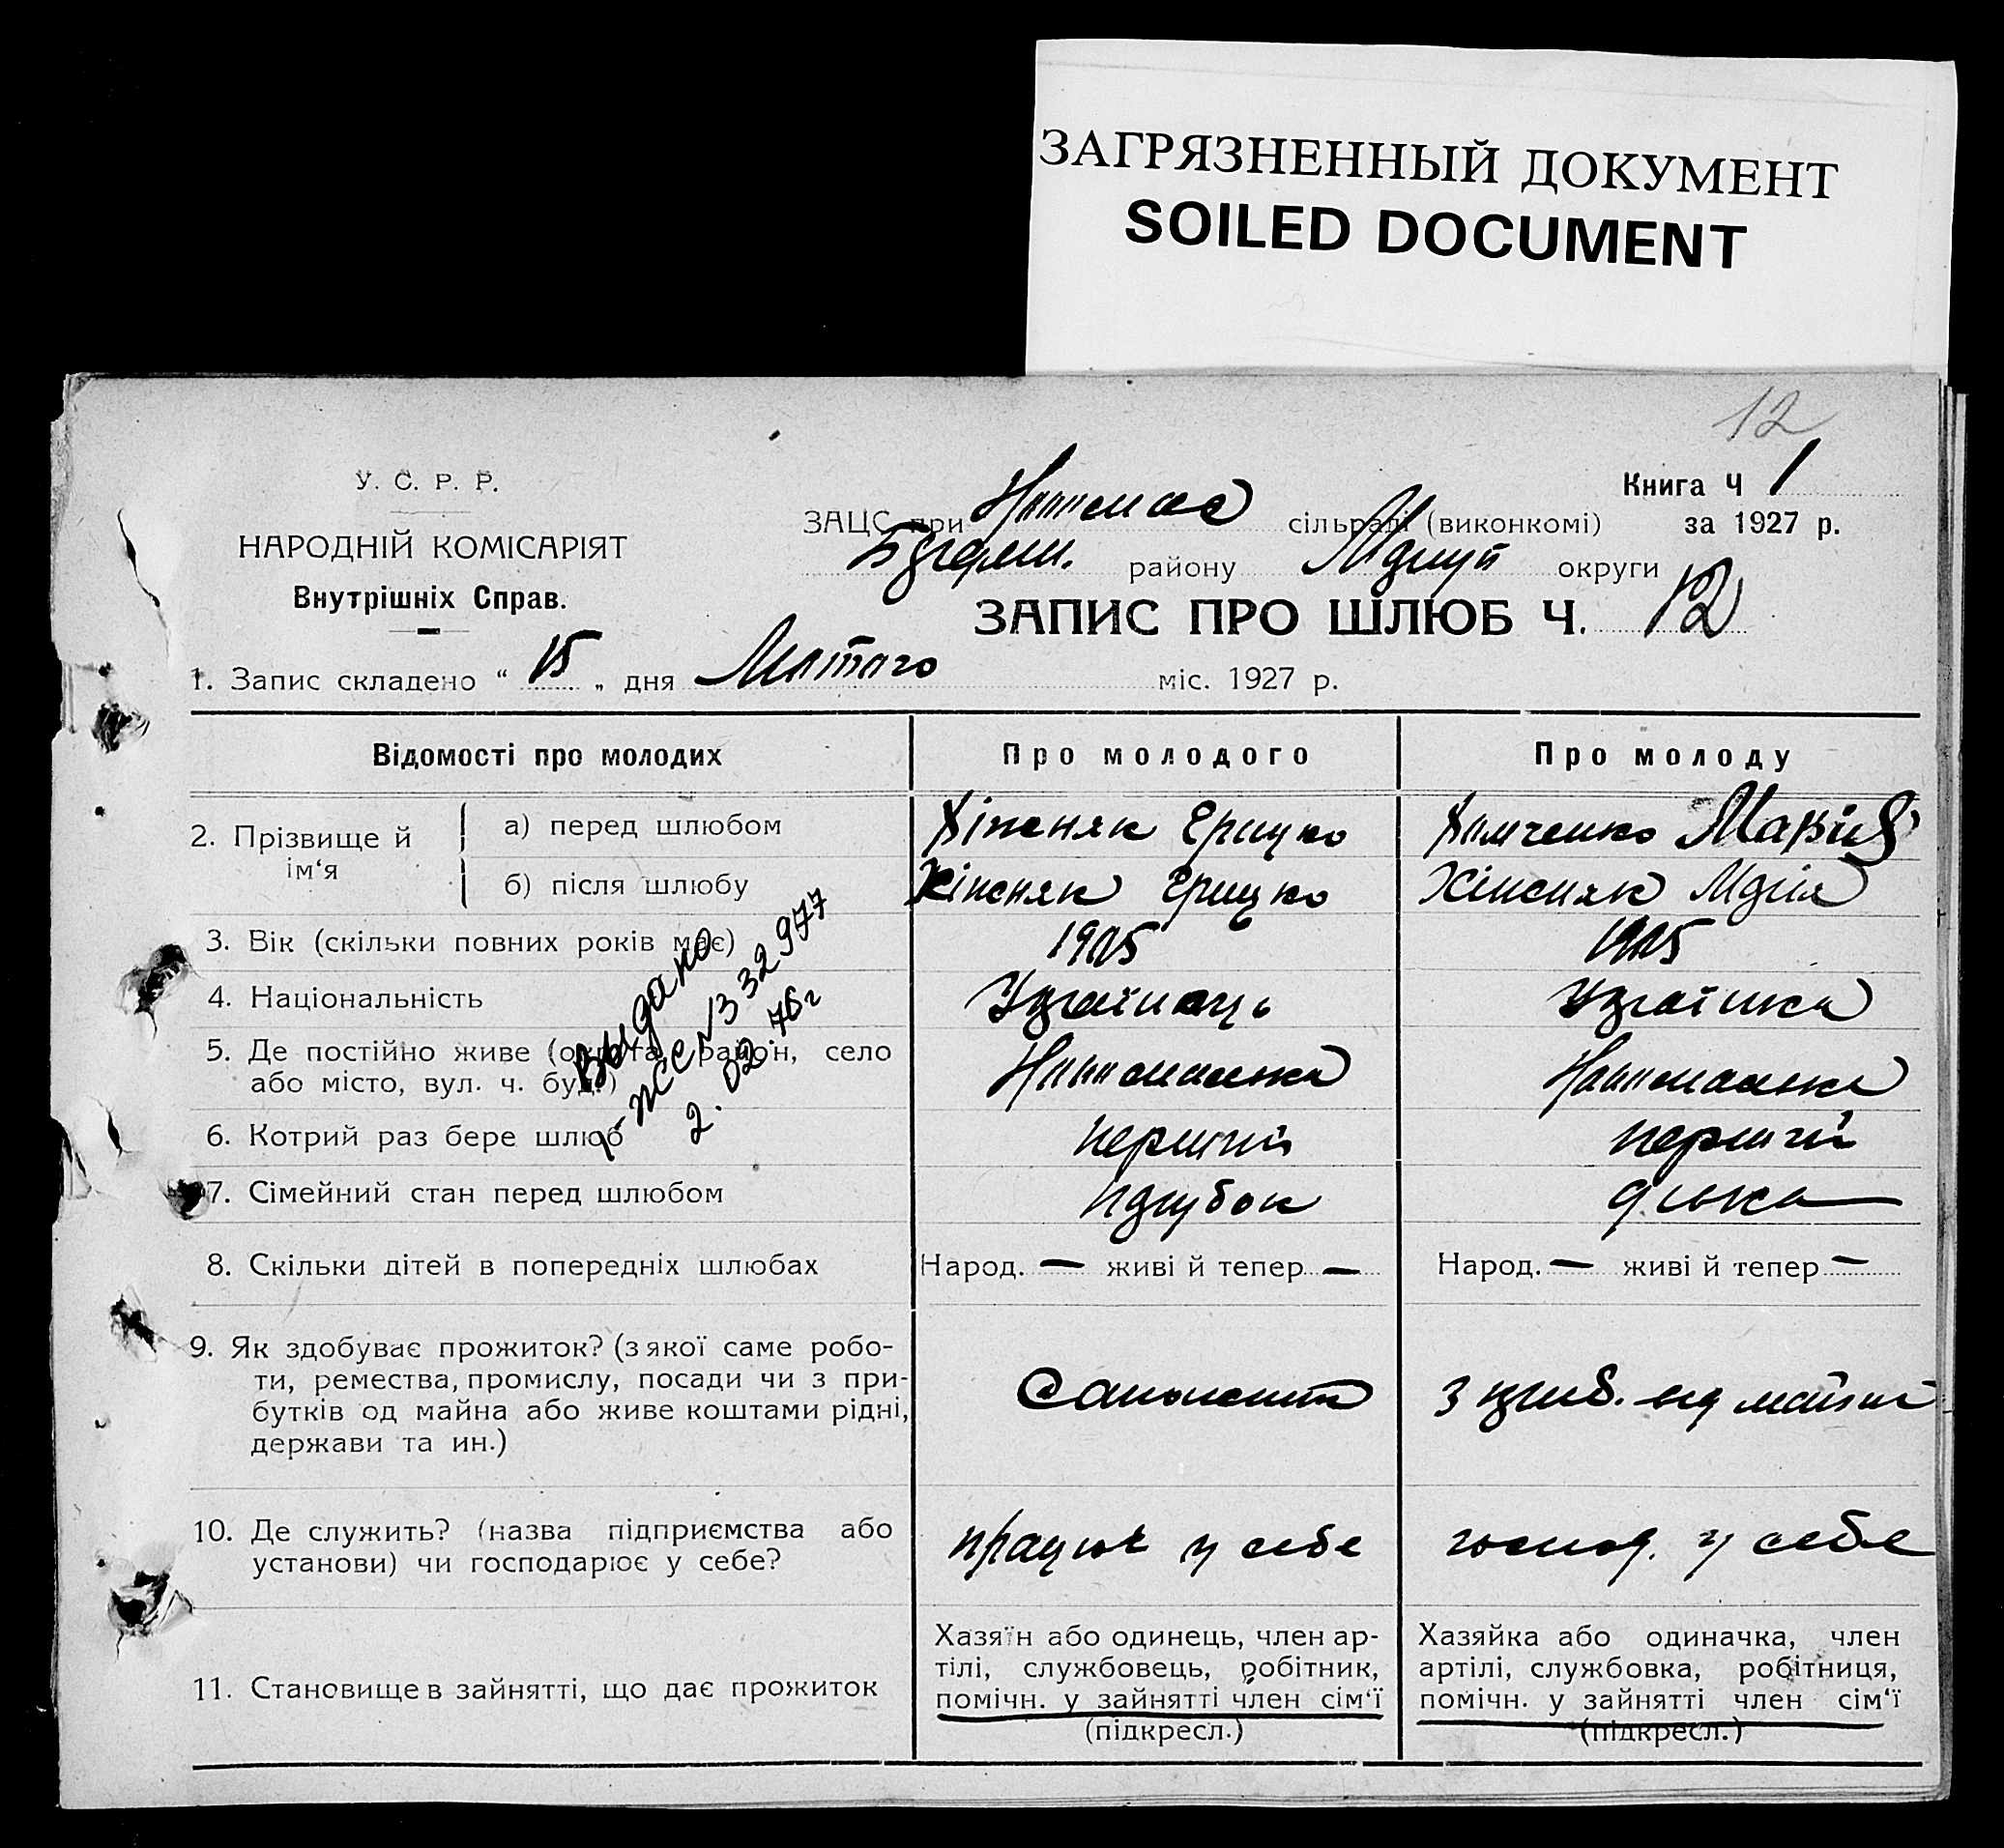 ЗАГРЯЗНЕННЫЙ ДОКУМЕНТ
SOILED DOCUMENT
12
У. С. Р. Р.
НАРОДНІЙ КОМІСАРІЯТ
Внутрішніх Справ.
Книга Ч 1
ЗАЦС при сільраді (виконкомі) за 1927 р.
району округи
ЗАПИС ПРО ШЛЮБ Ч. 12
1. Запис складено “ 15 „ дня Лютого міс. 1927 р.
Відомості про молодих Про молодого Про молоду
2. Прізвище й ім‘я
а) перед шлюбом Грицько Марія
б) після шлюбу Грицько Марія
3. Вік (скільки повних років має) 1905 1905
4. Національність Українець Українка
5. Де постійно живе (округа, район, село
або місто, вул. ч. буд.)
6. Котрий раз бере шлюб перший перший
7. Сімейний стан перед шлюбом парубок дівка
8. Скільки дітей в попередніх шлюбах Народ. — живі й тепер — Народ. — живі й тепер —
9. Як здобуває прожиток? (з якої саме робо-
ти, ремества, промислу, посади чи з при-
бутків од майна або живе коштами рідні,
держави та ин.)
з приб. від майна
10. Де служить? (назва підприємства або
установи) чи господарює у себе?
працює у себе
господ. у себе
11. Становище в зайнятті, що дає прожиток
Хазяїн або одинець, член ар-
тілі, службовець, робітник,
помічн. у зайнятті член сім‘ї
(підкресл.)
Хазяйка або одиначка, член
артілі, службовка, робітниця,
помічн. у зайнятті член сім‘ї
(підкресл.)
Выдано
332977
2.02.76г